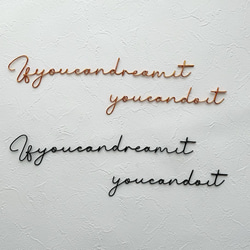 Ifyoucandreamit
youcandoit
Ifyoucandreamit
youcandoit